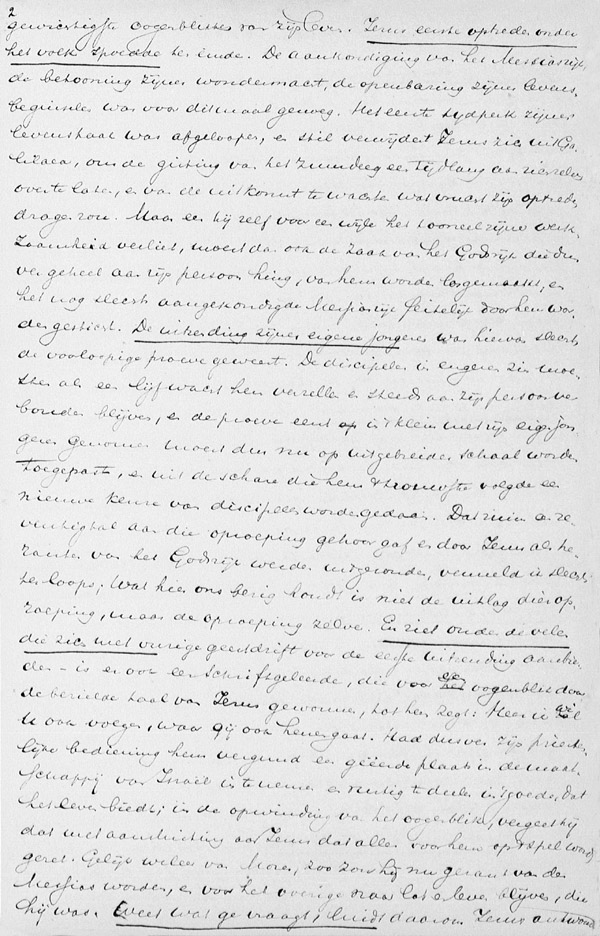 2
gewichtigste oogenblikken van zijn leven. Jezus eerste optreden onder
het volk spoedde ten einde. De aankondiging van het Messiasrijk,
de betooning zijner wondermacht, de openbaring zijner levens-
beginselen was voor ditmaal genoeg. Het eerste tijdperk zijner
levenstaak was afgeloopen, en stil verwijdert Jezus zich uit Ga-
lilaea, om de gisting van het zuurdeeg een tijd lang aan zich zelven
over te laten, en van de uitkomst te wachten wat vrucht zijn optreden
dragen zou. Maar eer hij zelf voor een wijle het tooneel zijner werk-
zaamheid verliet, moest dan ook de zaak van het Godsrijk die dus
ver geheel aan zijn persoon hing, van hem worden losgemaakt, en
het nog slechts aangekondigde Messiasrijk feitelijk door hem wor-
den gesticht. De uitzending zijner eigene jongeren was hiervan slechts
de voorloopige proeve geweest. De discipelen in engeren zin moe-
sten als een lijfwacht hem verzellen en steeds aan zijn persoon ver-
bonden blijven, en de proeve eerst in 't klein met zijn eigen jon
geren genomen moest dus nu op uitgebreider schaal worden
toegepast, en uit de schare die hem 't trouwste volgde een
nieuwe keuze van discipelen worden gedaan. Dat min een ze-
ventigtal aan die oproeping gehoor gaf en door Jezus als ge-
zanten van het Godsrijk werden uitgezonden, vermeld ik slechts
ter loops; Wat hier ons bezig houdt is niet de uitslag dier op-
roeping, maar de oproeping zelve. En ziet onder de velen
die zich met vurige geestdrift voor de eerste uitzending aanbie
den – is er ook een Schriftgeleerde, die voor een oogenblik door
de bezielde taal van Jezus gewonnen, tot hem zegt: Heer ik wil
u ook volgen, waar gij ook henen gaat. Had dusver zijn prieste-
lijke bediening hem vergund een geëerde plaats in de maat-
schappij van Israël in te nemen en rustig te deelen in 't goede, dat
het leven biedt; in de opwinding van het oogenblik, vergeet hij
dat met aansluiting aan Jezus dat alles voor hem op 't spel wordt
gezet. Gelijk weleer van Mozes, zoo zou hij nu gezant van den
Messias worden, en voor het overige naar later leven blijven, die
hij was. Weet wat ge vraagt, luidt daarom Jezus antwoord